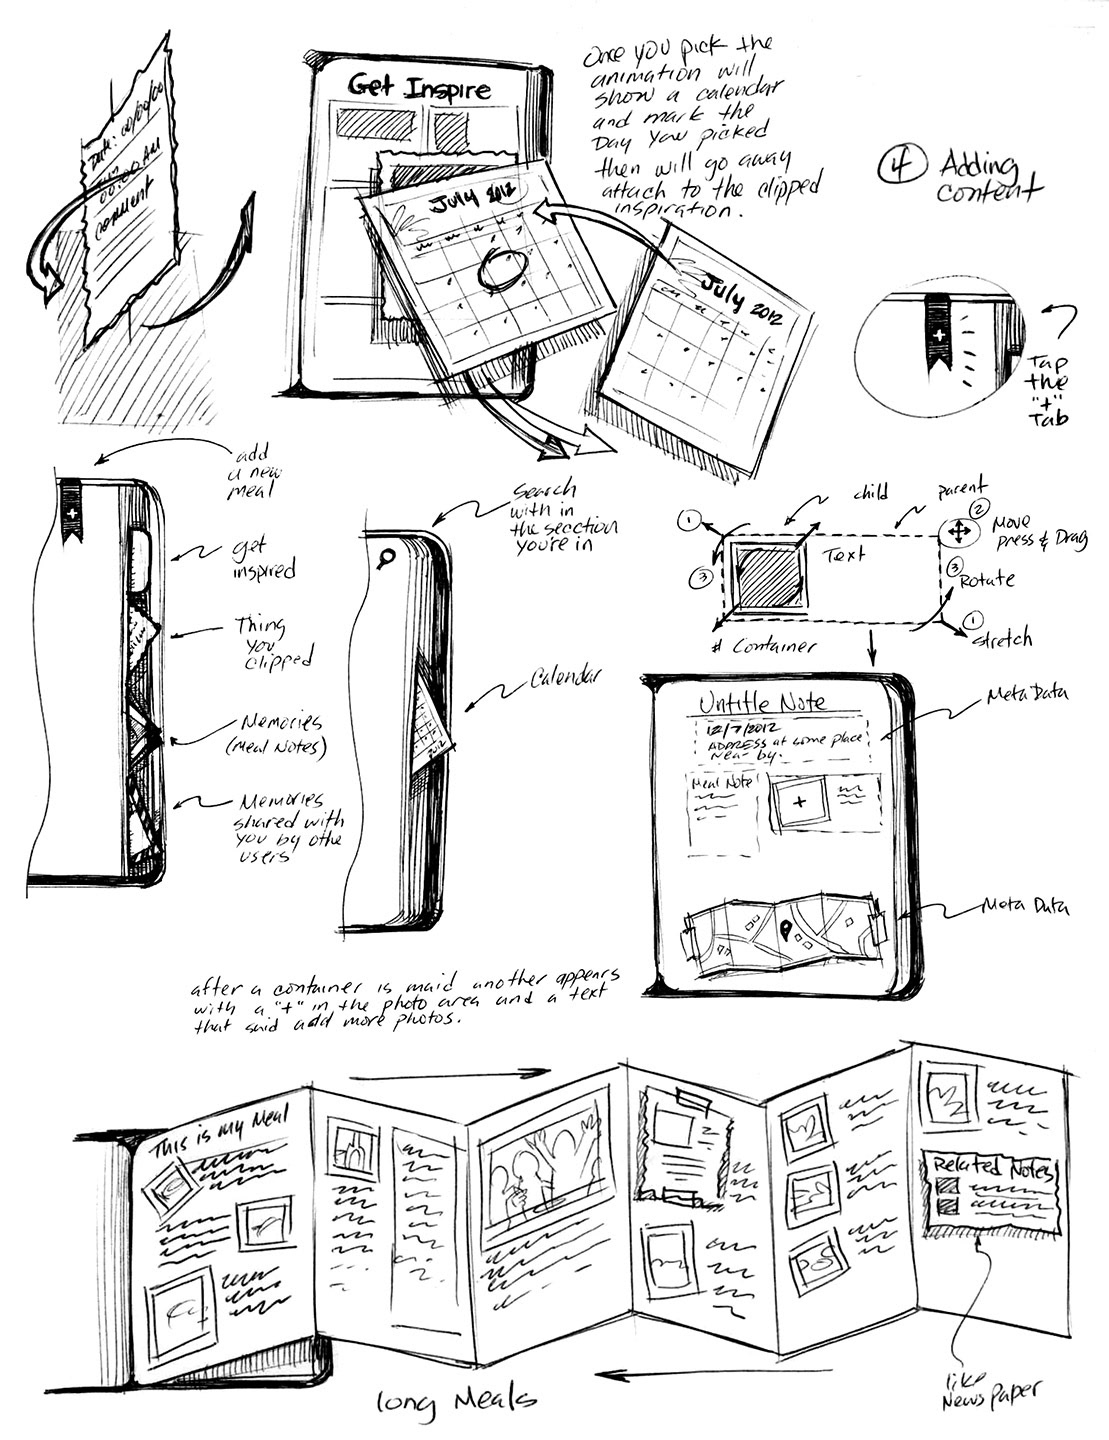 Date: 00/00/00
00:00 AM
comment
Get Inspire
July 2012
Once you pick the
animation will
show a calendar
and mark the
Day you picked
then will go away
attach to the clipped
inspiration.
July 2012
4 Adding
content
+
Tap
the
"+"
Tab
add
a new
meal
+
get
inspired
Thing
you
clipped
Memories
(Meal Notes)
Memories
shared with
you by othe
users
Search
with in
the section
you're in
Calendar
2012
child
parent
1
2
Move
press & Drag
Text
3
3
Rotate
# Container
1
Stretch
Untitle Note
12/7/2012
ADDRESS at some place
Near by.
Meta Data
Meal Note
+
Meta Data
after a container is maid another appears
with a "+" in the photo area and a text
that said add more photos.
This is my Meal
Related Notes
long Meals
like
News paper